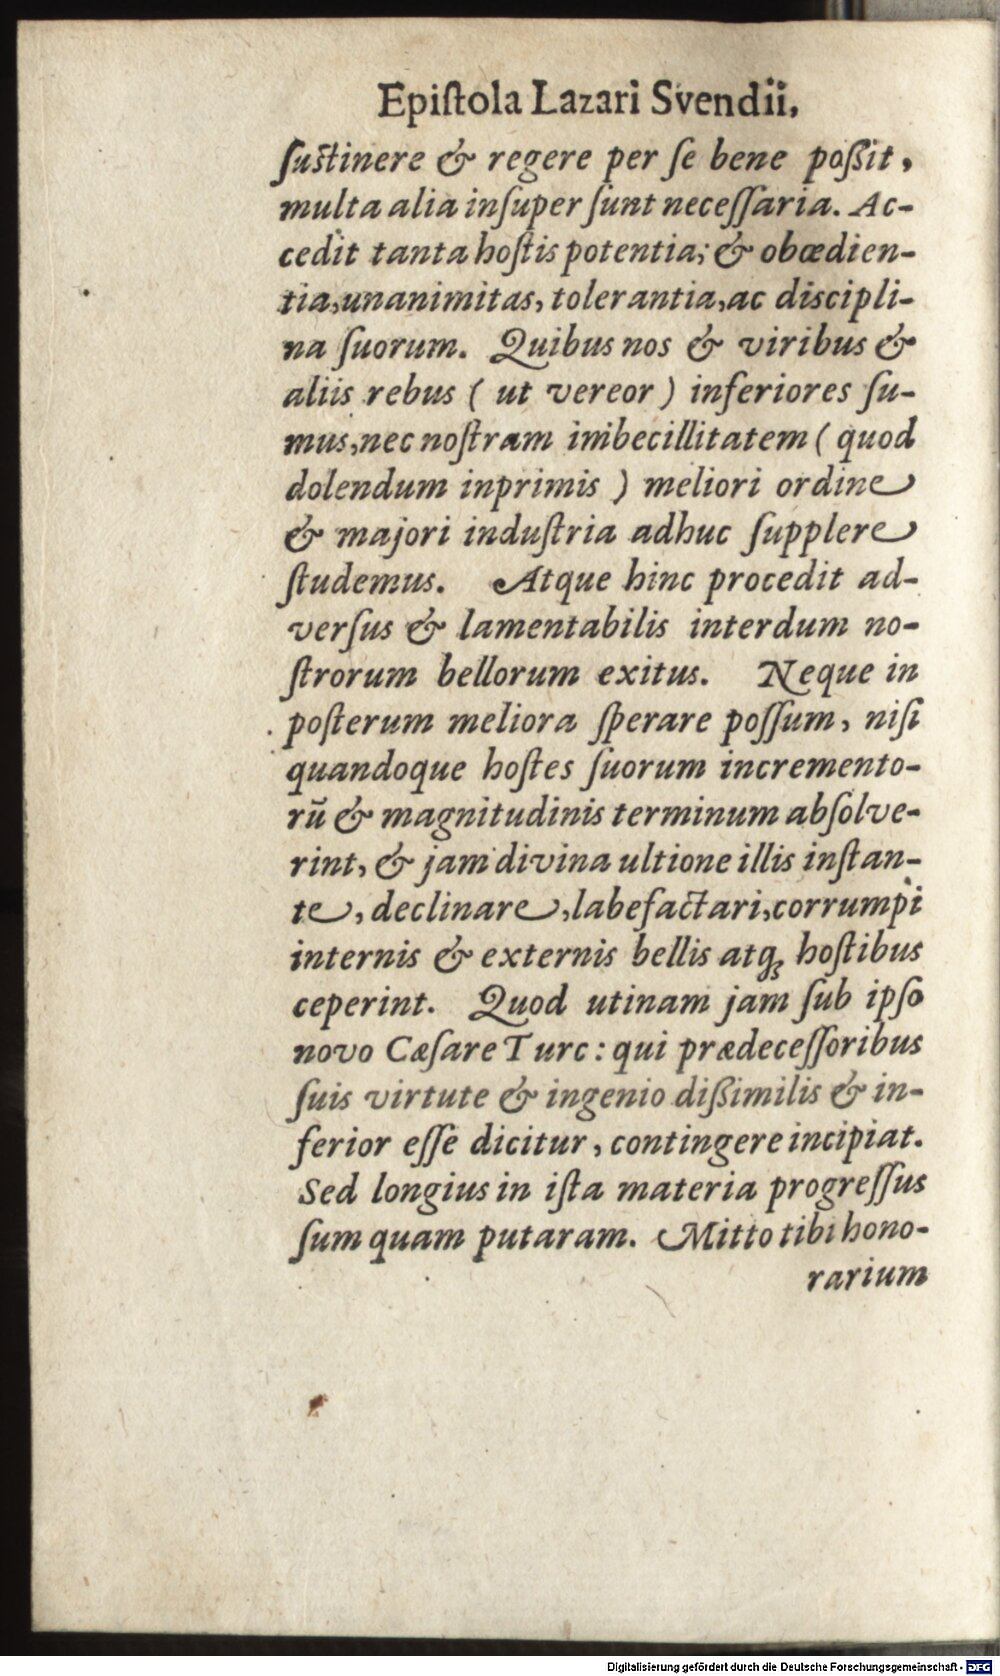 Epiſtola Lazari Svendii,
ſuſtinere & regere per ſe bene poßit,
multa alia inſuper ſunt neceſſaria. Ac-
cedit tanta hoſtis potentia; & obœdien-
tia, unanimitas, tolerantia, ac discipli-
na ſuorum. Quibus nos & viribus &
aliis rebus ( ut vereor ) inferiores ſu-
mus, nec noſtram imbecillitatem ( quod
dolendum inprimis ) meliori ordine
& majori induſtria adhuc ſupplere
ſtudemus. Atque hinc procedit ad-
verſus & lamentabilis interdum no-
ſtrorum bellorum exitus. Neque in
poſterum meliora ſperare poſſum, niſi
quandoque hoſtes ſuorum incremento-
rũ & magnitudinis terminum abſolve-
rint, & jam divina ultione illis inſtan-
te, declinare, labefactari, corrumpi
internis & externis bellis atq; hoſtibus
ceperint. Quod utinam jam ſub ipſo
novo Cæſare Turc: qui prædeceſſoribus
ſuis virtute & ingenio dißimilis & in-
ferior eſſe dicitur, contingere incipiat.
Sed longius in iſta materia progreſſus
ſum quam putaram. Mitto tibi hono-
rarium
Digitalisierung gefördert durch die Deutsche Forschungsgemeinschaft - DFG